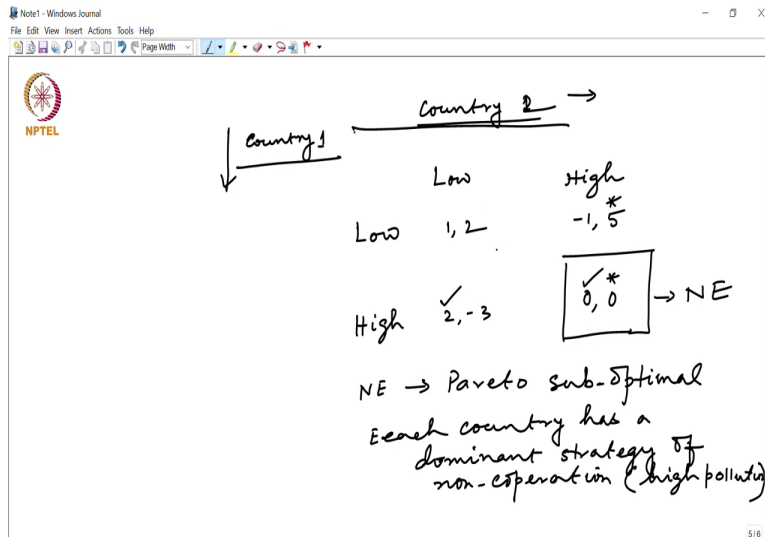 Note1 - Windows Journal
File Edit View Insert Actions Tools Help
Page Width
NPTEL
Country 2
Country 1
Low High
Low 1, 2 -1, 5*
High ✓2, -3 ✓0, 0* → NE
NE → Pareto sub-optimal
Eeach country has a
dominant strategy of
non-coperation (high pollution)
5/6